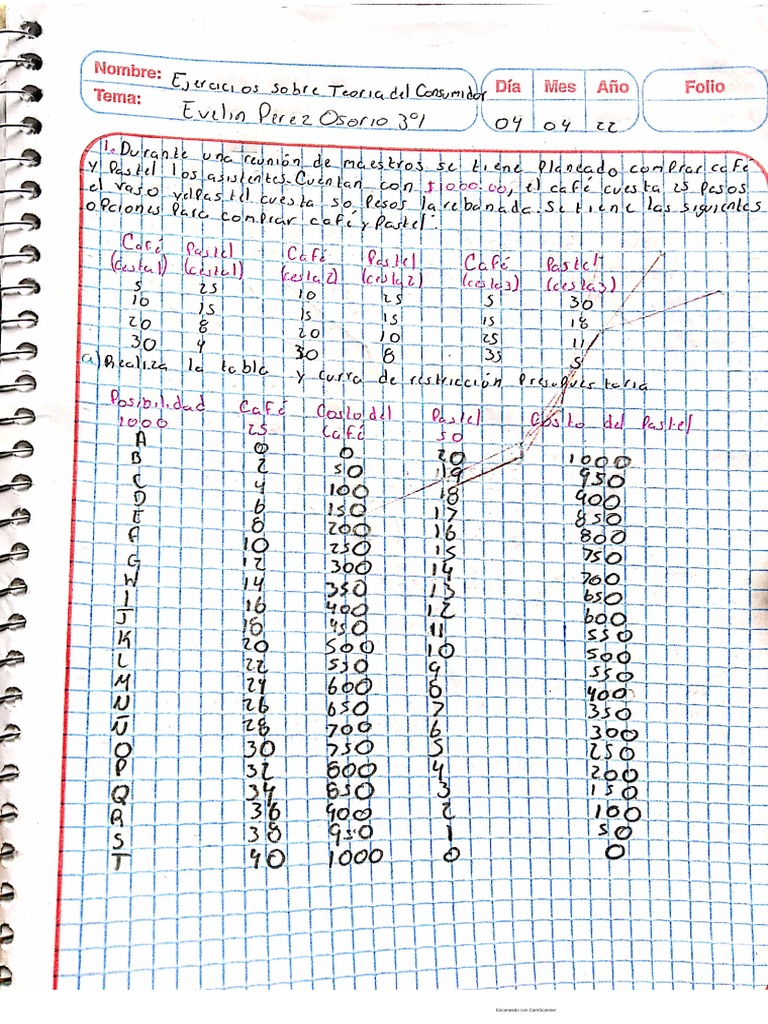 Nombre: Ejercicios sobre Teoria del Consumidor Día Mes Año Folio
Tema: Evelin Perez Osorio 3°1 04 04 22
1. Durante una reunión de maestros se tiene planeado comprar café
y Pastel los asistentes. Cuentan con $1000.00, el café cuesta 25 pesos
el vaso y el pastel cuesta 50 pesos la rebanada. Se tiene las siguientes
opciones para comprar café y Pastel.
Café Pastel Café Pastel Café Pastel
(cesta1) (cesta1) (cesta2) (cesta2) (cesta3) (cesta3)
5 25 10 25 5 30
10 15 15 15 15 18
20 8 20 10 25 11
30 4 30 8 35 5
a) Realiza la tabla y curva de restricción Presupuestaria
Posibilidad Café Costo del Pastel Costo del Pastel
1000 25 Café 50
A 0 0 20 1000
B 2 50 19 950
C 4 100 18 900
D 6 150 17 850
E 8 200 16 800
F 10 250 15 750
G 12 300 14 700
H 14 350 13 650
I 16 400 12 600
J 18 450 11 550
K 20 500 10 500
L 22 550 9 550
M 24 600 8 400
N 26 650 7 350
Ñ 28 700 6 300
O 30 750 5 250
P 32 800 4 200
Q 34 850 3 150
R 36 900 2 100
S 38 950 1 50
T 40 1000 0 0
Escaneado con CamScanner